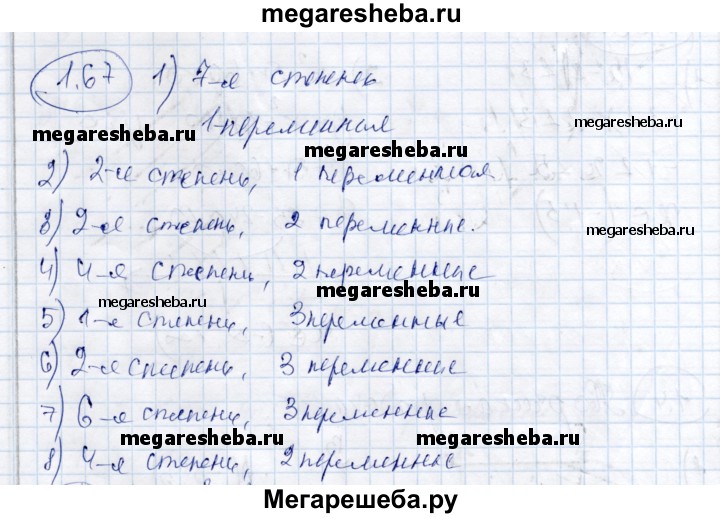 megaresheba.ru
1.67 1) 7-я степень
1 переменная
megaresheba.ru
megaresheba.ru
2) 2-я степень, 1 переменная
3) 2-я степень, 2 переменные.
megaresheba.ru
4) 4-я степень, 2 переменные
megaresheba.ru
megaresheba.ru
5) 1-я степень, 3 переменные
6) 2-я степень, 3 переменные
7) 6-я степень, 3 переменные
megaresheba.ru
megaresheba.ru
8) 4-я степень, 2 переменные
Мегарешеба.ру